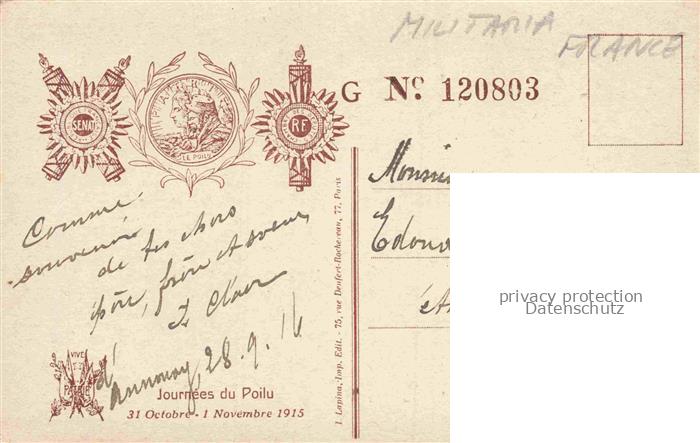 MILITARIA
FRANCE
SENAT
LE POILU
RF
G No 120803
Monsieu
Edoua
Comme
souvenir
de tes chers
père, frère et soeur
d'Annonay, 28.9.16
VIVE
LA
PATRIE
Journées du Poilu
31 Octobre - 1 Novembre 1915
I. Lapina, Imp. Edit. - 75, rue Denfert-Rochereau, 77, Paris
privacy protection
Datenschutz